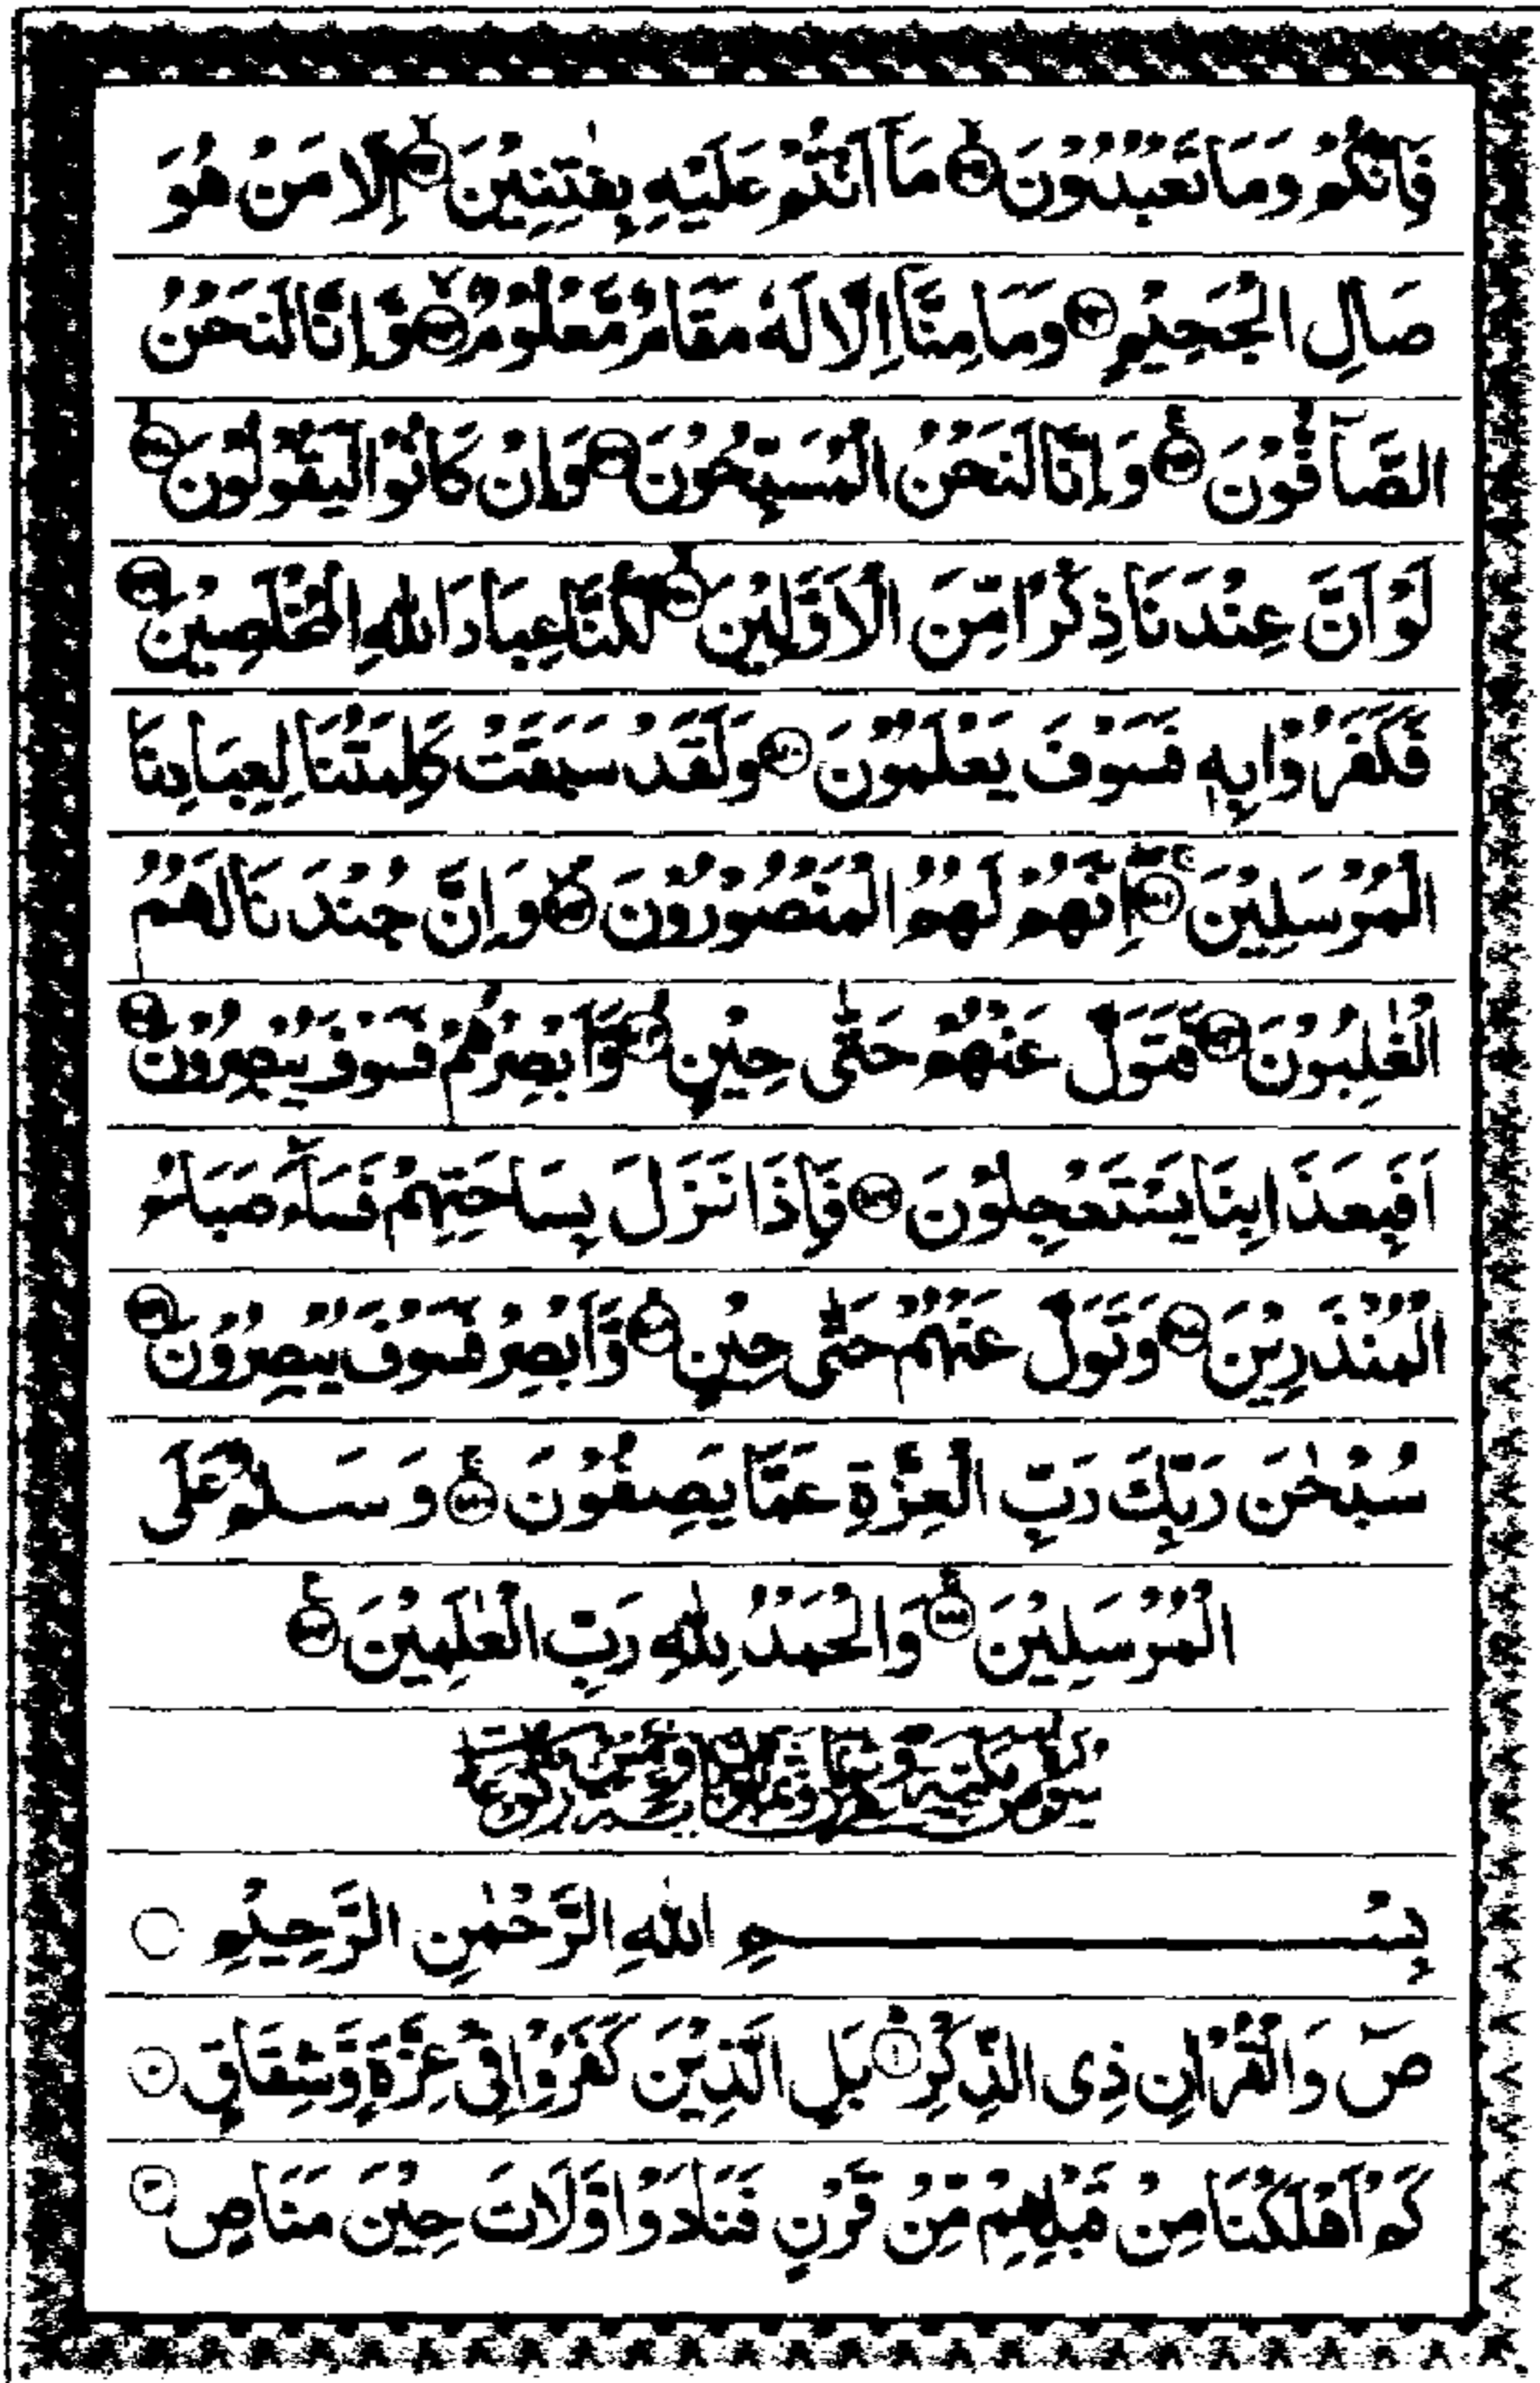 فَاِنَّكُمْ وَمَا تَعْبُدُوْنَ ﴿۱۶۱﴾ مَآ اَنْتُمْ عَلَيْهِ بِفٰتِنِيْنَ ﴿۱۶۲﴾ اِلَّا مَنْ هُوَ
صَالِ الْجَحِيْمِ ﴿۱۶۳﴾ وَمَا مِنَّآ اِلَّا لَهٗ مَقَامٌ مَّعْلُوْمٌ ﴿۱۶۴﴾ وَّاِنَّا لَنَحْنُ
الصَّآفُّوْنَ ﴿۱۶۵﴾ وَاِنَّا لَنَحْنُ الْمُسَبِّحُوْنَ ﴿۱۶۶﴾ وَاِنْ كَانُوْا لَيَقُوْلُوْنَ ﴿۱۶۷﴾
لَوْ اَنَّ عِنْدَنَا ذِكْرًا مِّنَ الْاَوَّلِيْنَ ﴿۱۶۸﴾ لَكُنَّا عِبَادَ اللّٰهِ الْمُخْلَصِيْنَ ﴿۱۶۹﴾
فَكَفَرُوْا بِهٖ فَسَوْفَ يَعْلَمُوْنَ ﴿۱۷۰﴾ وَلَقَدْ سَبَقَتْ كَلِمَتُنَا لِعِبَادِنَا
الْمُرْسَلِيْنَ ﴿۱۷۱﴾ اِنَّهُمْ لَهُمُ الْمَنْصُوْرُوْنَ ﴿۱۷۲﴾ وَاِنَّ جُنْدَنَا لَهُمُ
الْغٰلِبُوْنَ ﴿۱۷۳﴾ فَتَوَلَّ عَنْهُمْ حَتّٰى حِيْنٍ ﴿۱۷۴﴾ وَّاَبْصِرْهُمْ فَسَوْفَ يُبْصِرُوْنَ ﴿۱۷۵﴾
اَفَبِعَذَابِنَا يَسْتَعْجِلُوْنَ ﴿۱۷۶﴾ فَاِذَا نَزَلَ بِسَاحَتِهِمْ فَسَآءَ صَبَاحُ
الْمُنْذَرِيْنَ ﴿۱۷۷﴾ وَتَوَلَّ عَنْهُمْ حَتّٰى حِيْنٍ ﴿۱۷۸﴾ وَّاَبْصِرْ فَسَوْفَ يُبْصِرُوْنَ ﴿۱۷۹﴾
سُبْحٰنَ رَبِّكَ رَبِّ الْعِزَّةِ عَمَّا يَصِفُوْنَ ﴿۱۸۰﴾ وَسَلٰمٌ عَلَى
الْمُرْسَلِيْنَ ﴿۱۸۱﴾ وَالْحَمْدُ لِلّٰهِ رَبِّ الْعٰلَمِيْنَ ﴿۱۸۲﴾
بِسْمِ اللّٰهِ الرَّحْمٰنِ الرَّحِيْمِ
صٓ وَالْقُرْاٰنِ ذِى الذِّكْرِ ﴿۱﴾ بَلِ الَّذِيْنَ كَفَرُوْا فِىْ عِزَّةٍ وَّشِقَاقٍ ﴿۲﴾
كَمْ اَهْلَكْنَا مِنْ قَبْلِهِمْ مِّنْ قَرْنٍ فَنَادَوْا وَّلَاتَ حِيْنَ مَنَاصٍ ﴿۳﴾